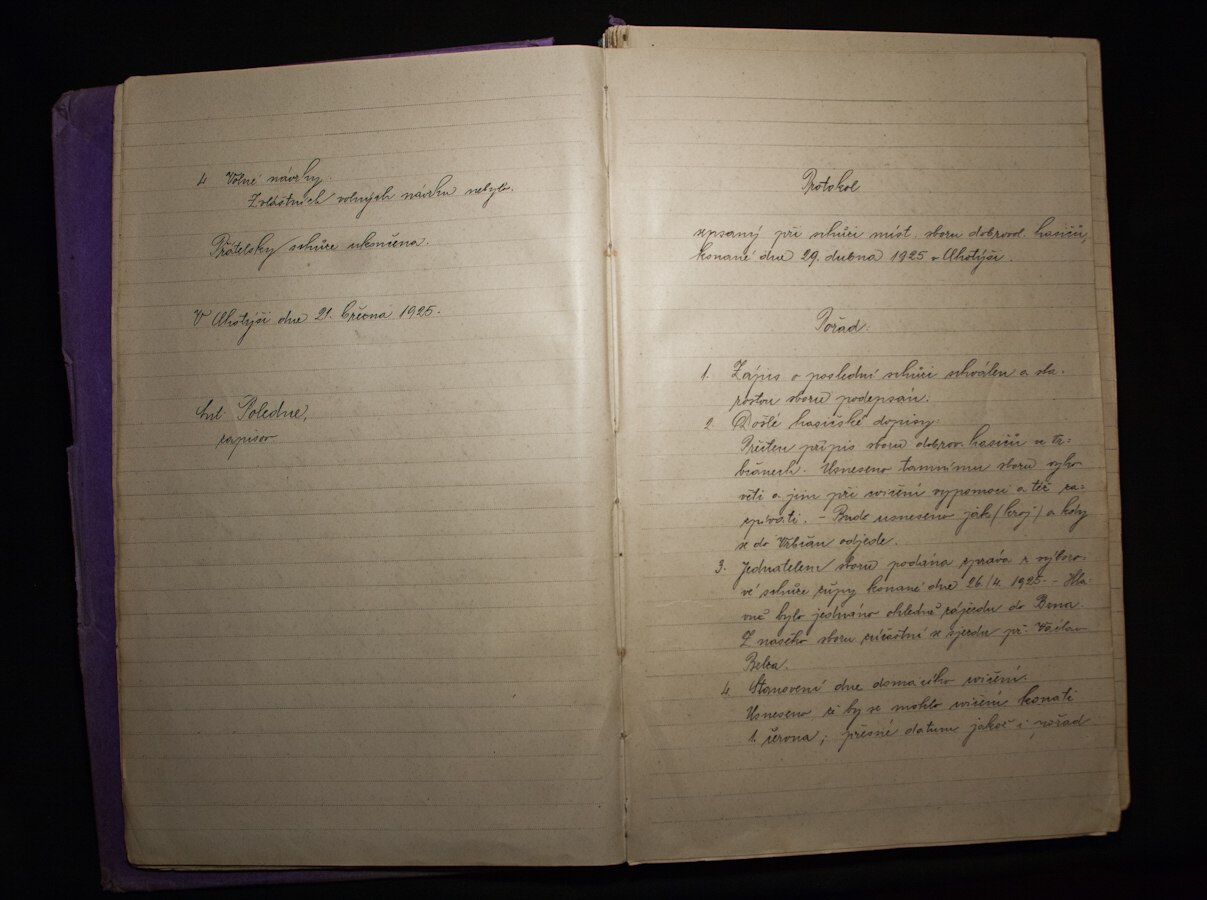 4 Volné návrhy.
Zvláštních volných návrhu nebylo.
Přátelsky schůze ukončena.
V Lhotýši dne 21. března 1925.
Poledne,
zapisov
Protokol
sepsaný při schůzi míst. sboru dobrovol. hasičů,
konané dne 29. dubna 1925 v Lhotýši.
Pořad.
1. Zápis o poslední schůzi schválen a sta-
rostou sboru podepsán.
2 Došlé hasičské dopisy:
Přečten přípis sboru dobrov. hasičů ve Vr-
bčanech. Usneseno tamnímu sboru vyho-
věti a jim při cvičení vypomoci a též za-
zpívati. – Bude usneseno jak (kroj) a kdy
se do Vrbčan odjede.
3. Jednatelem sboru podána zpráva z výboro-
vé schůze župy konané dne 26./4. 1925. – Hla-
vně bylo jednáno ohledně zájezdu do Brna.
Z našeho sboru súčastní se sjezdu př. Václav
Belza.
4. Stanovení dne domácího cvičení.
Usneseno, že by se mohlo cvičení konati
1. června; přesné datum jakož i pořad